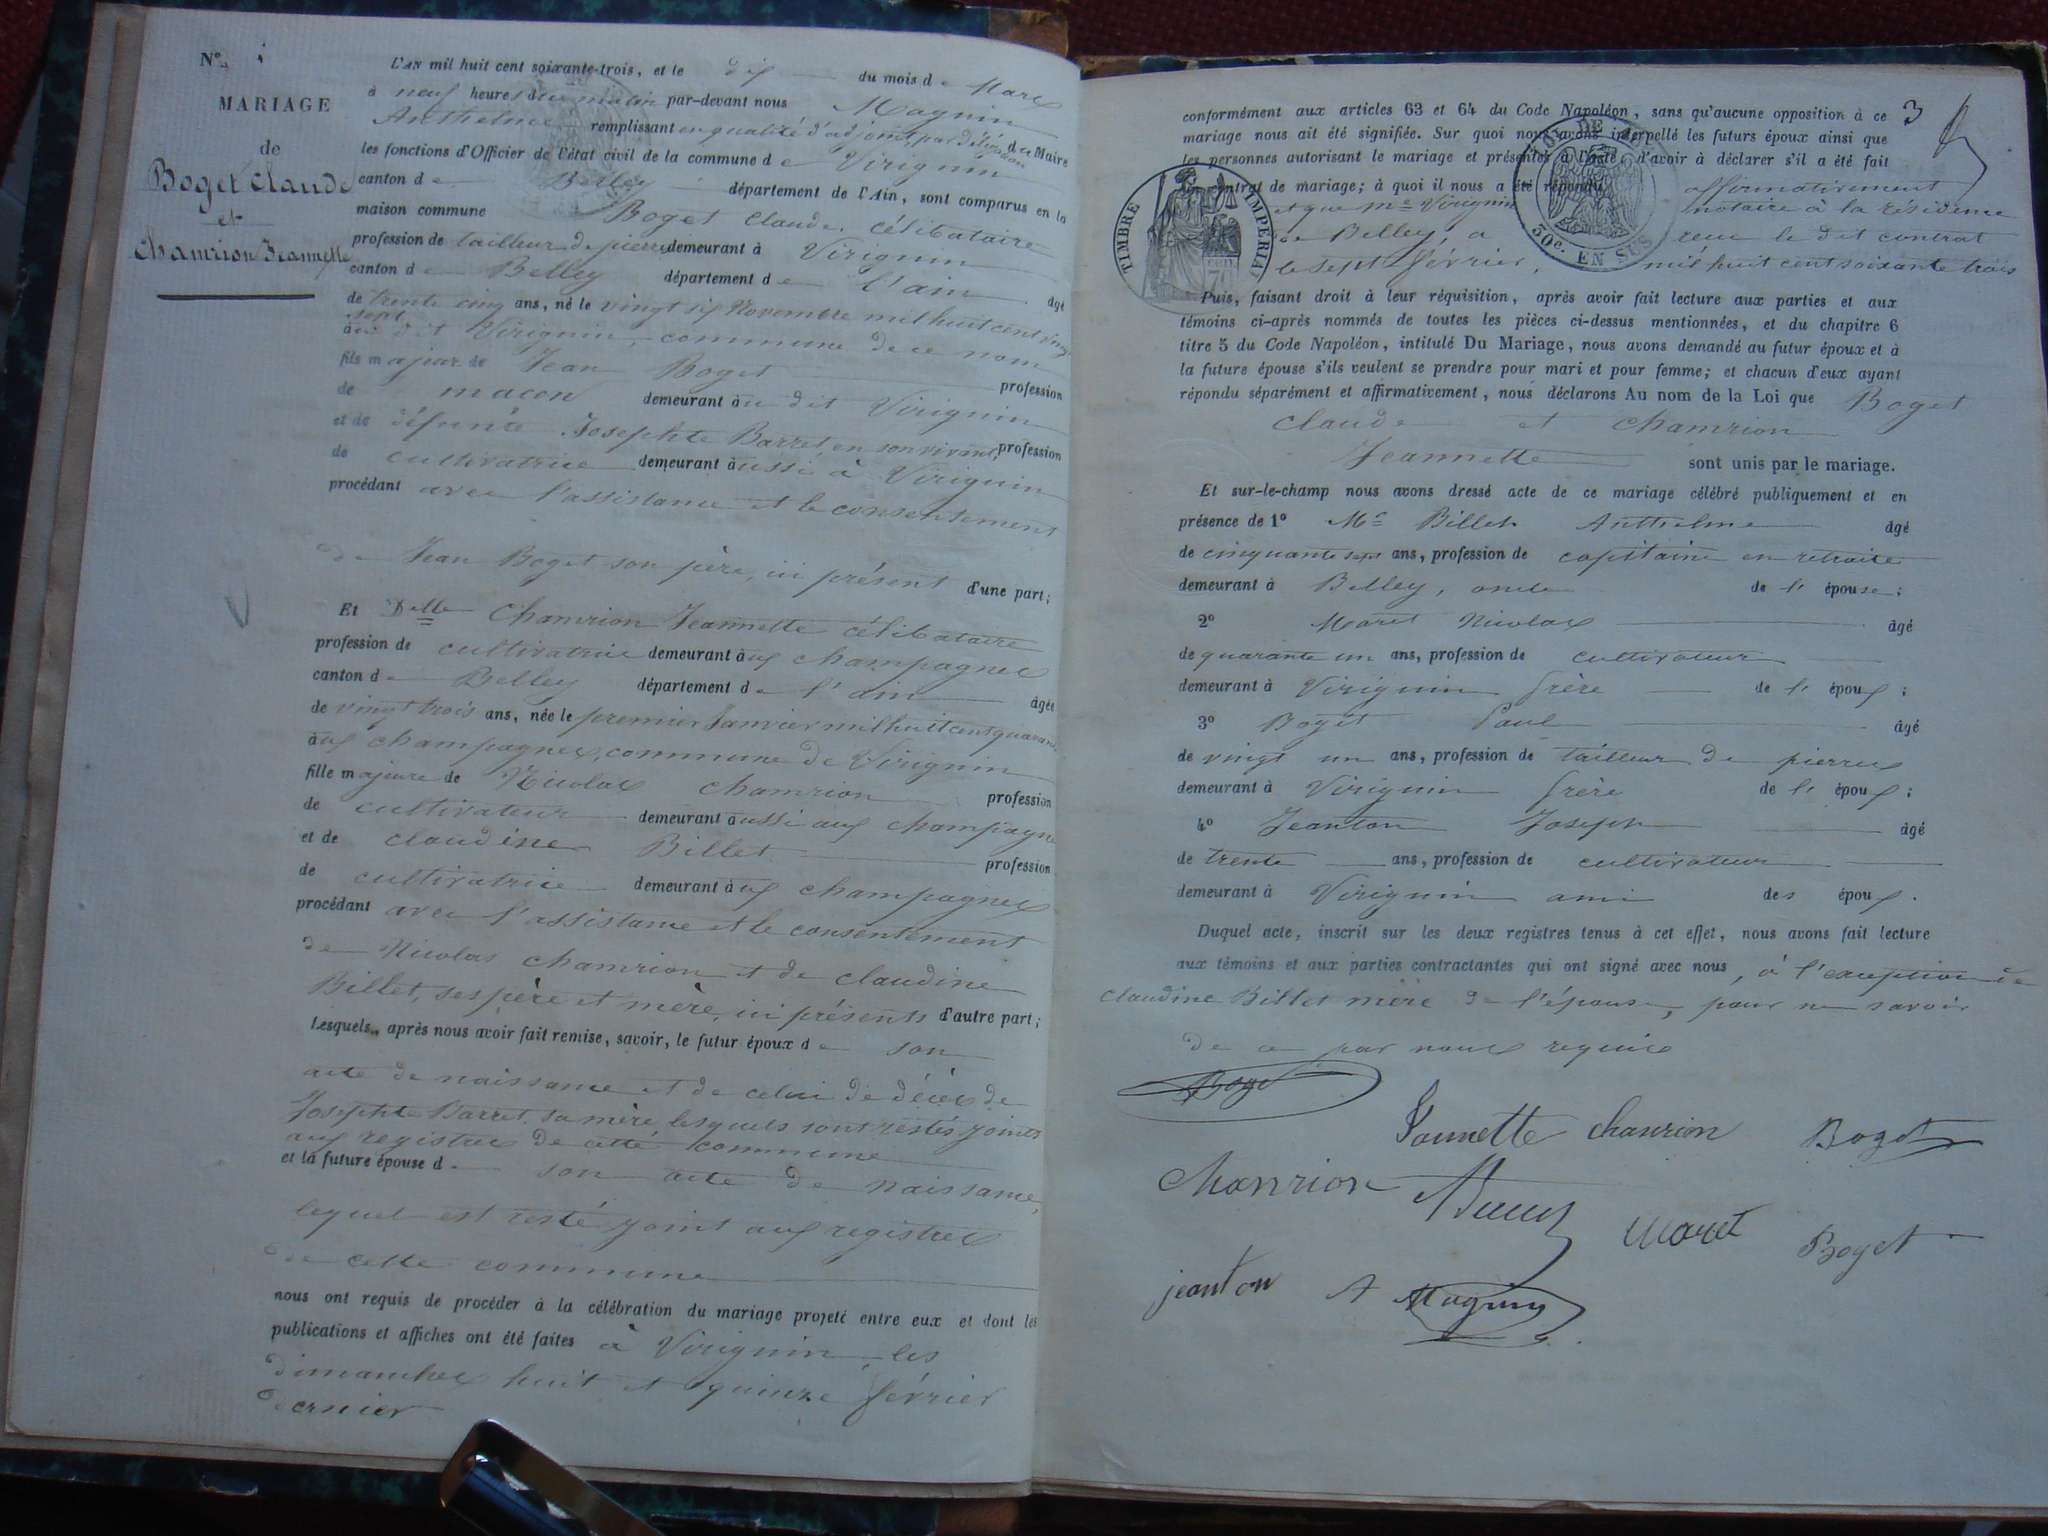 N° 1
MARIAGE
de
Boget Claude
et
Chamrion Jeannette
L'AN mil huit cent soixante-trois, et le dix du mois de Mars
à neuf heures du matin par-devant nous Magnin
Anthelme remplissant en qualité d'adjoint, par délégation du Maire
les fonctions d'Officier de l'état civil de la commune de Virignin
canton de Belley département de l'Ain, sont comparus en la
maison commune Boget Claude, célibataire
profession de tailleur de pierres demeurant à Virignin
canton de Belley département de l'ain âgé
de trente cinq ans, né le vingt six Novembre mil huit cent vingt
sept
au dit Virignin, commune de ce nom
fils majeur de Jean Boget profession
de macon demeurant au dit Virignin
et de défunte Josephte Barret, en son vivant, profession
de cultivatrice demeurant aussi à Virignin
procédant avec l'assistance et le consentement
de Jean Boget son père, ici présent d'une part;
Et Delle Chamrion Jeannette célibataire
profession de cultivatrice demeurant aux champagnes
canton de Belley département de l'ain âgée
de vingt trois ans, née le premier Janvier mil huit cent quarante
aux champagnes, commune de Virignin
fille majeure de Nicolas chamrion profession
de cultivateur demeurant aussi aux champagnes
et de claudine Billet profession
de cultivatrice demeurant aux champagnes
procédant avec l'assistance et le consentement
de Nicolas chamrion et de claudine
Billet, ses père et mère, ici présents d'autre part;
Lesquels, après nous avoir fait remise, savoir, le futur époux de son
acte de naissance et de celui de décès de
Josephte Barret, sa mère, lesquels sont restés joints
aux registres de cette commune
et la future épouse de son acte de naissance,
lequel est resté joint aux registres
de cette commune
nous ont requis de procéder à la célébration du mariage projeté entre eux et dont les
publications et affiches ont été faites à Virignin les
dimanches huit et quinze février
dernier
3
conformément aux articles 63 et 64 du Code Napoléon, sans qu'aucune opposition à ce
mariage nous ait été signifiée. Sur quoi nous avons interpellé les futurs époux ainsi que
les personnes autorisant le mariage et présentes à l'acte, d'avoir à déclarer s'il a été fait
contrat de mariage; à quoi il nous a été répondu affirmativement
et que Me Virignin notaire à la résidence
de Belley, a recu le dit contrat
le sept février, mil huit cent soixante trois
TIMBRE IMPERIAL
50c. EN SUS
Puis, faisant droit à leur réquisition, après avoir fait lecture aux parties et aux
témoins ci-après nommés de toutes les pièces ci-dessus mentionnées, et du chapitre 6
titre 5 du Code Napoléon, intitulé Du Mariage, nous avons demandé au futur époux et à
la future épouse s'ils veulent se prendre pour mari et pour femme; et chacun d'eux ayant
répondu séparément et affirmativement, nous déclarons Au nom de la Loi que Boget
claude et chamrion
Jeannette sont unis par le mariage.
Et sur-le-champ nous avons dressé acte de ce mariage célébré publiquement et en
présence de 1° Mr Billet Anthelme âgé
de cinquante sept ans, profession de capitaine en retraite
demeurant à Belley, oncle de l'épouse;
2° Maret Nicolas âgé
de quarante un ans, profession de cultivateur
demeurant à Virignin frère de l'époux;
3° Boget Paul âgé
de vingt un ans, profession de tailleur de pierres
demeurant à Virignin frère de l'époux;
4° Jeanton Joseph âgé
de trente ans, profession de cultivateur
demeurant à Virignin ami des époux.
Duquel acte, inscrit sur les deux registres tenus à cet effet, nous avons fait lecture
aux témoins et aux parties contractantes qui ont signé avec nous, à l'exception de
claudine Billet mère de l'épouse, pour ne savoir
de ce par nous requis
Boget
Jannette chamrion Boget
Chamrion Maret Boget
jeanton A Magnin